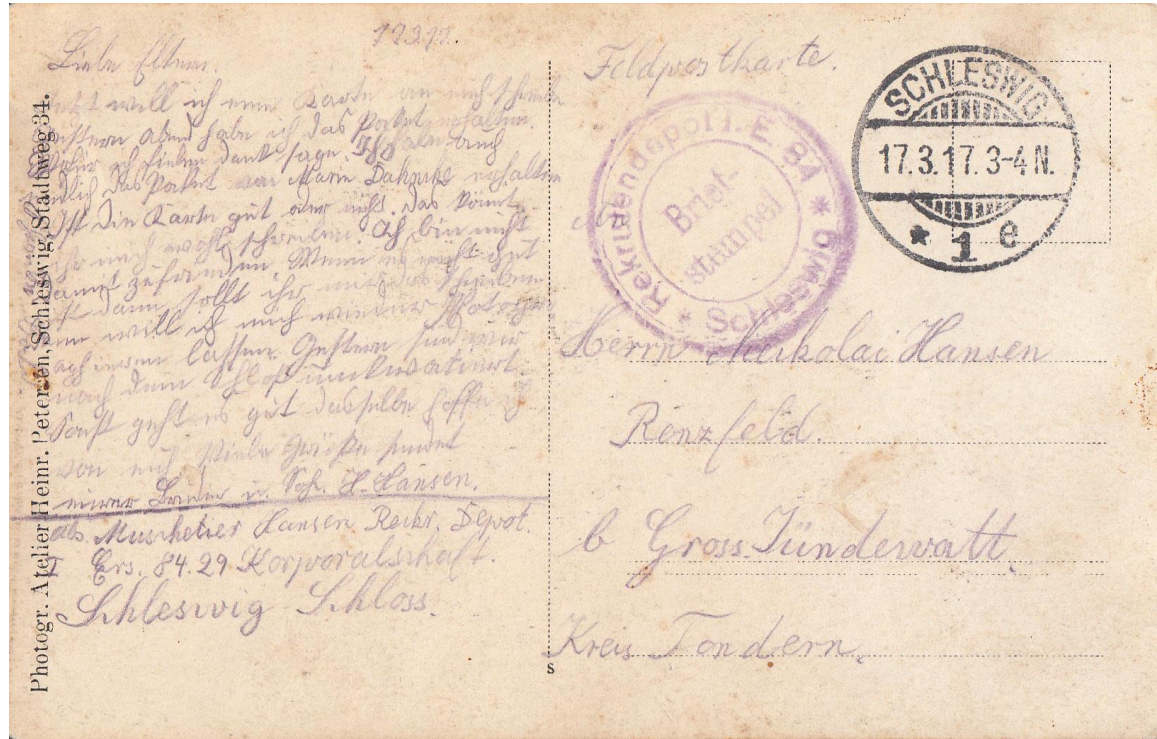 Photogr. Atelier Heinr. Petersen, Schleswig, Stadtweg 34.
Liebe Eltern.
will ich eine Karte an euch schreiben
gestern abend habe ich das Packet erhalten
ich vielen dank sage. Ich habe auch
das Packet von Marie erhalten
Ist die Karte gut oder nicht. Das könnt
ihr noch wohl schreiben. Ich bin nicht
damit zufrieden. Wenn es nicht gut
ist dann sollt ihr schreiben
will ich mich wieder Photogra
lassen. Gestern sind wir
nach dem Schloß
Sonst geht es gut dasselbe hoffe ich
von euch Viele Grüße sendet
eurer Bruder u. Sohn. H. Hansen.
abs. Muschetier Hansen Rekr. Depot.
I Ers. 84. 29 Korporalschaft.
Schleswig Schloss.
Feldpostkarte.
SCHLESWIG
17.3.17. 3-4 N.
* 1 e
Rekrutendepot I. E 84 * Schleswig *
Brief-
stempel
Herrn Nikolai Hansen
Renzfeld.
b Gross. Jündewatt.
Kreis Tondern.
S